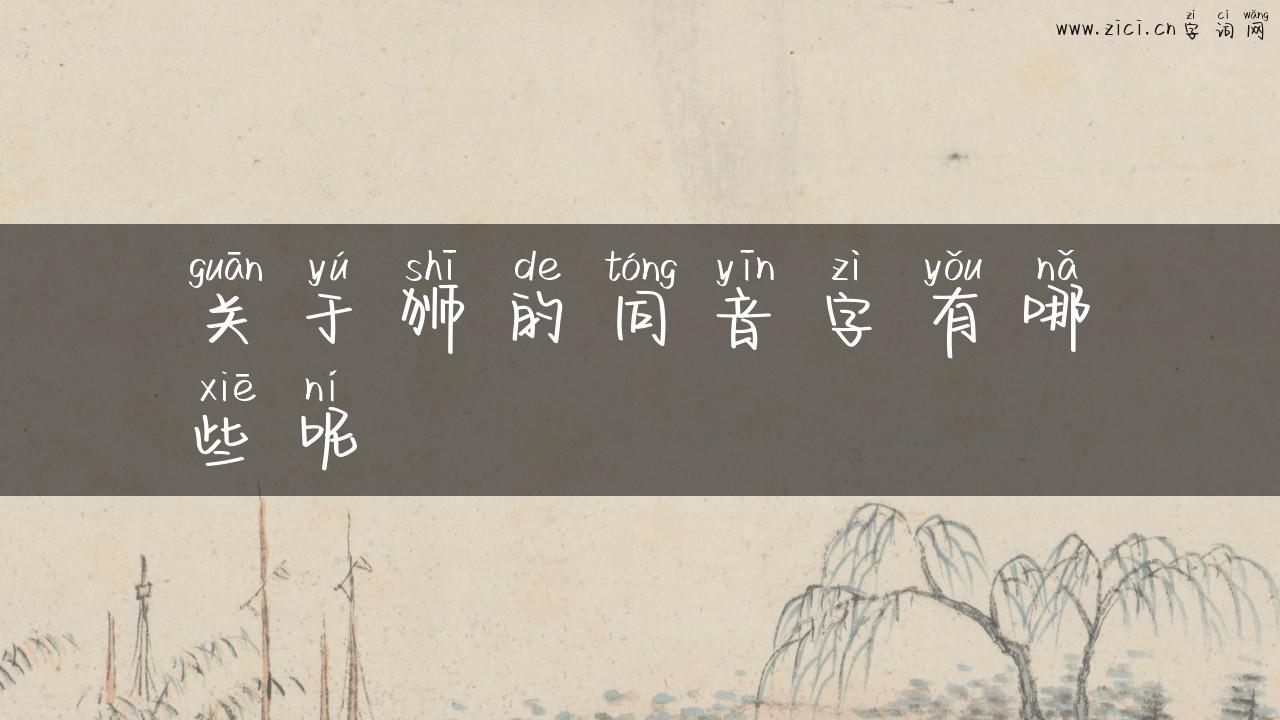 zì cí wǎng
www.zici.cn 字词网
guān yú shī de tóng yīn zì yǒu nǎ
关于狮的同音字有哪
xiē ní
些呢